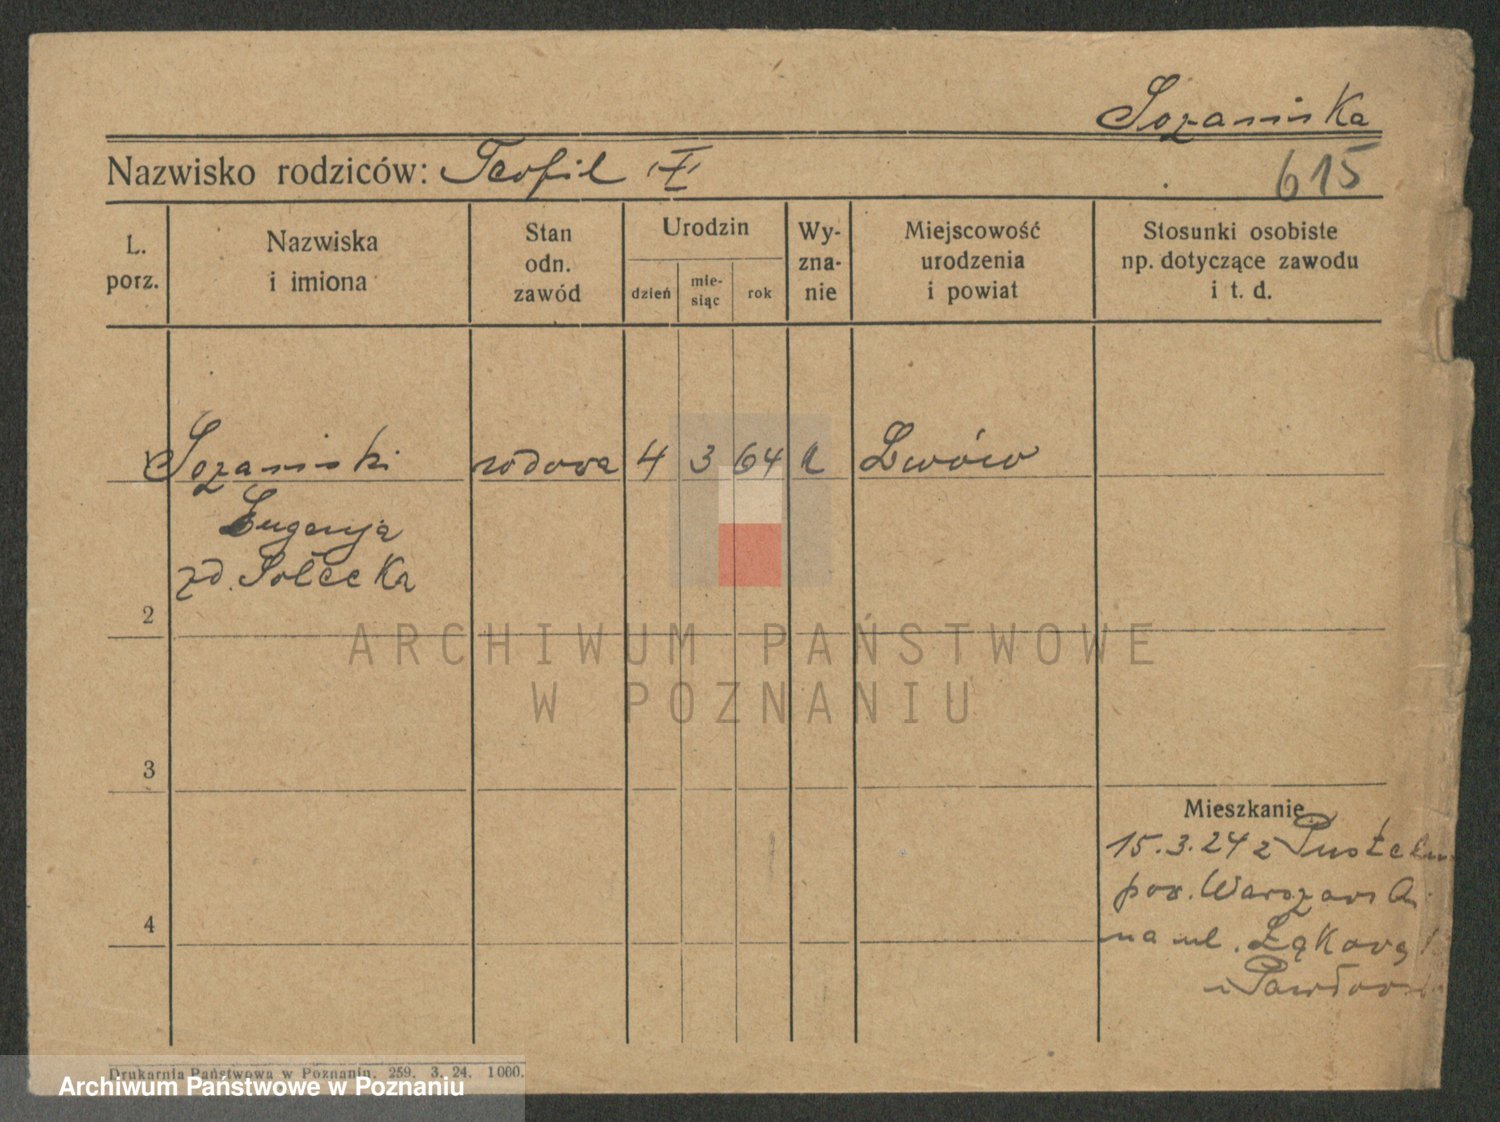 Sozańska
Nazwisko rodziców: Teofil
615
L. porz.
Nazwiska i imiona
Stan odn. zawód
Urodzin
dzień
mie- siąc
rok
Wy- zna- nie
Miejscowość urodzenia i powiat
Stosunki osobiste np. dotyczące zawodu i t. d.
Sozański wdowa 4 3 64 Lwów
Eugenja
zd. Solecka
2
3
4
Mieszkanie
15.3.24 z
pow. Warszawa
na ul. Łąkową
ARCHIWUM PAŃSTWOWE
W POZNANIU
Drukarnia Państwowa w Poznaniu. 259. 3. 24. 1000.
Archiwum Państwowe w Poznaniu